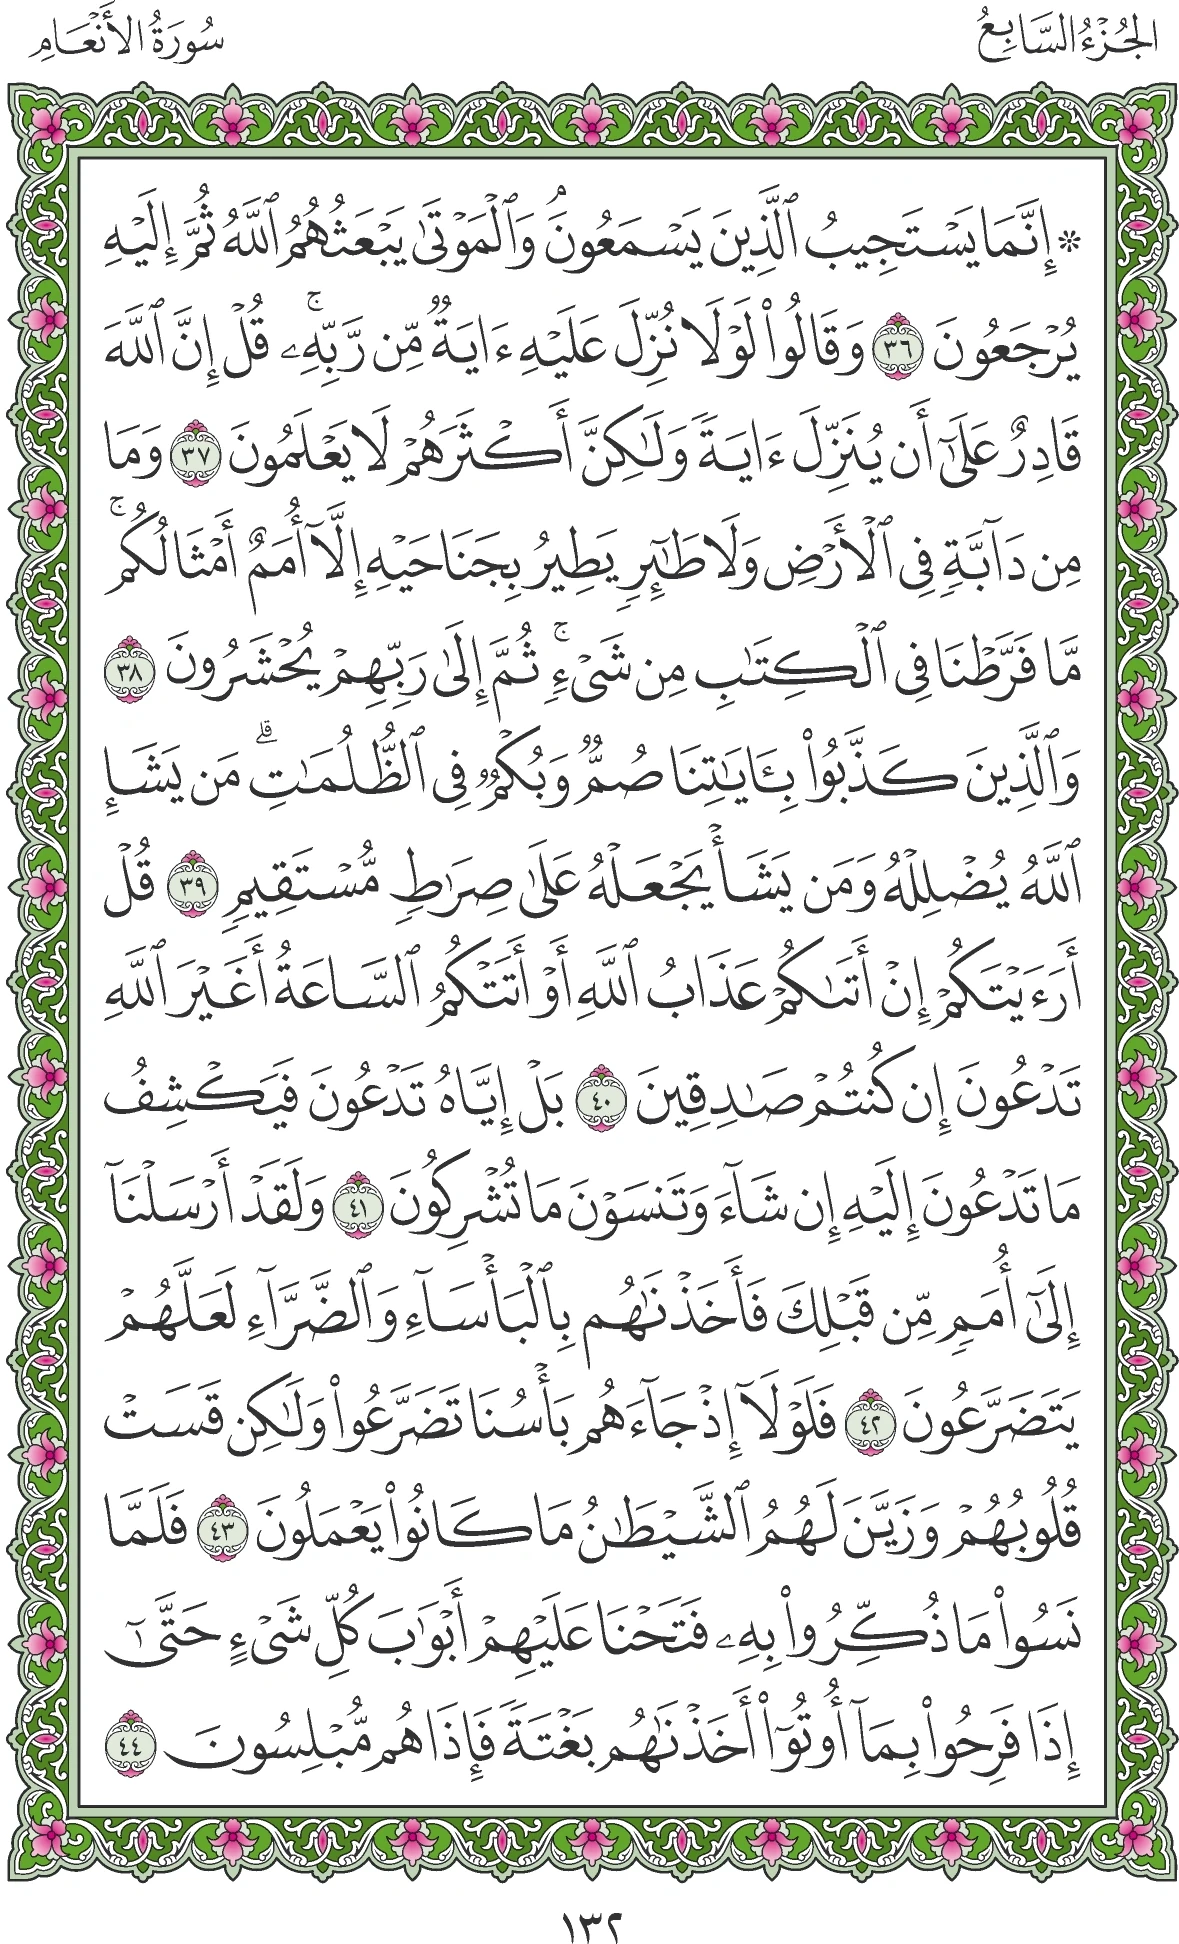 الجُزْءُ السَّابِعُ
سُورَةُ الأَنْعَامِ
۞ إِنَّمَا يَسْتَجِيبُ ٱلَّذِينَ يَسْمَعُونَۘ وَٱلْمَوْتَىٰ يَبْعَثُهُمُ ٱللَّهُ ثُمَّ إِلَيْهِ
يُرْجَعُونَ ٣٦ وَقَالُوا۟ لَوْلَا نُزِّلَ عَلَيْهِ ءَايَةٌ مِّن رَّبِّهِۦۚ قُلْ إِنَّ ٱللَّهَ
قَادِرٌ عَلَىٰٓ أَن يُنَزِّلَ ءَايَةً وَلَٰكِنَّ أَكْثَرَهُمْ لَا يَعْلَمُونَ ٣٧ وَمَا
مِن دَآبَّةٍ فِى ٱلْأَرْضِ وَلَا طَٰٓئِرٍ يَطِيرُ بِجَنَاحَيْهِ إِلَّآ أُمَمٌ أَمْثَالُكُمۚ
مَّا فَرَّطْنَا فِى ٱلْكِتَٰبِ مِن شَىْءٍۚ ثُمَّ إِلَىٰ رَبِّهِمْ يُحْشَرُونَ ٣٨
وَٱلَّذِينَ كَذَّبُوا۟ بِـَٔايَٰتِنَا صُمٌّ وَبُكْمٌ فِى ٱلظُّلُمَٰتِۗ مَن يَشَإِ
ٱللَّهُ يُضْلِلْهُ وَمَن يَشَأْ يَجْعَلْهُ عَلَىٰ صِرَٰطٍ مُّسْتَقِيمٍ ٣٩ قُلْ
أَرَءَيْتَكُمْ إِنْ أَتَىٰكُمْ عَذَابُ ٱللَّهِ أَوْ أَتَتْكُمُ ٱلسَّاعَةُ أَغَيْرَ ٱللَّهِ
تَدْعُونَ إِن كُنتُمْ صَٰدِقِينَ ٤٠ بَلْ إِيَّاهُ تَدْعُونَ فَيَكْشِفُ
مَا تَدْعُونَ إِلَيْهِ إِن شَآءَ وَتَنسَوْنَ مَا تُشْرِكُونَ ٤١ وَلَقَدْ أَرْسَلْنَآ
إِلَىٰٓ أُمَمٍ مِّن قَبْلِكَ فَأَخَذْنَٰهُم بِٱلْبَأْسَآءِ وَٱلضَّرَّآءِ لَعَلَّهُمْ
يَتَضَرَّعُونَ ٤٢ فَلَوْلَآ إِذْ جَآءَهُم بَأْسُنَا تَضَرَّعُوا۟ وَلَٰكِن قَسَتْ
قُلُوبُهُمْ وَزَيَّنَ لَهُمُ ٱلشَّيْطَٰنُ مَا كَانُوا۟ يَعْمَلُونَ ٤٣ فَلَمَّا
نَسُوا۟ مَا ذُكِّرُوا۟ بِهِۦ فَتَحْنَا عَلَيْهِمْ أَبْوَٰبَ كُلِّ شَىْءٍ حَتَّىٰٓ
إِذَا فَرِحُوا۟ بِمَآ أُوتُوٓا۟ أَخَذْنَٰهُم بَغْتَةً فَإِذَا هُم مُّبْلِسُونَ ٤٤
١٣٢